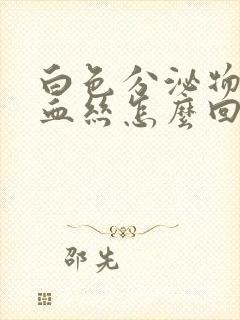 白色分泌物
血丝怎麼回
邵先